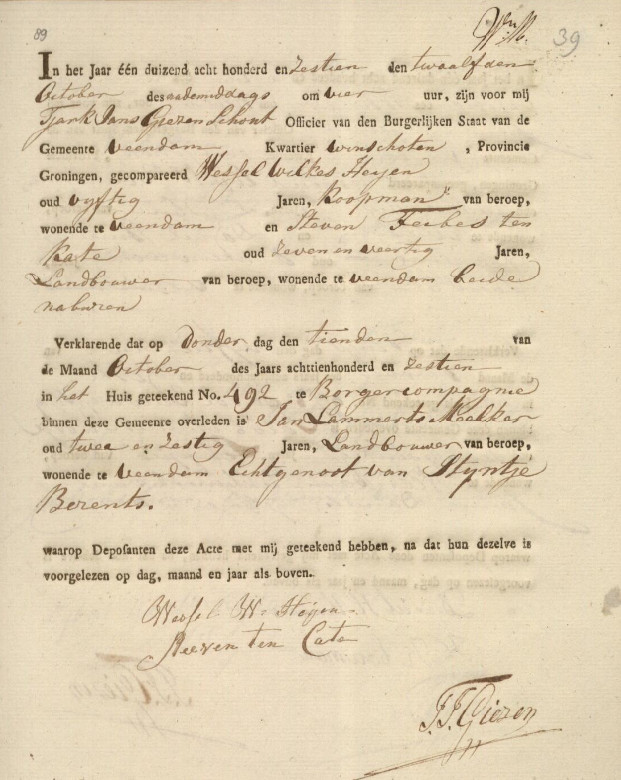 89
Wm M.
39
In het Jaar één duizend acht honderd en Zestien den twaalfden
October des nademiddags om vier uur, zijn voor mij
Tjark Jans Giezen Schout Officier van den Burgerlijken Staat van de
Gemeente Veendam Kwartier Winschoten, Provincie
Groningen, gecompareerd Wessel Wilkes Heijen
oud vyftig Jaren, Koopman van beroep,
wonende te Veendam en Steven Feebes ten
Kate oud Zeven en veertig Jaren,
Landbouwer van beroep, wonende te Veendam beide
naburen
Verklarende dat op Donder dag den tienden van
de Maand October des Jaars achttienhonderd en Zestien
in het Huis geteekend No. 492 te Borgercompagnie
binnen deze Gemeente overleden is Jan Lammerts Mookker
oud twee en Zestig Jaren, Landbouwer van beroep,
wonende te Veendam Echtgenoot van Styntje
Berents.
waarop Deposanten deze Acte met mij geteekend hebben, na dat hun dezelve is
voorgelezen op dag, maand en jaar als boven.
Wessel W. Heijen
Steeven ten Cate
T.J. Giezen